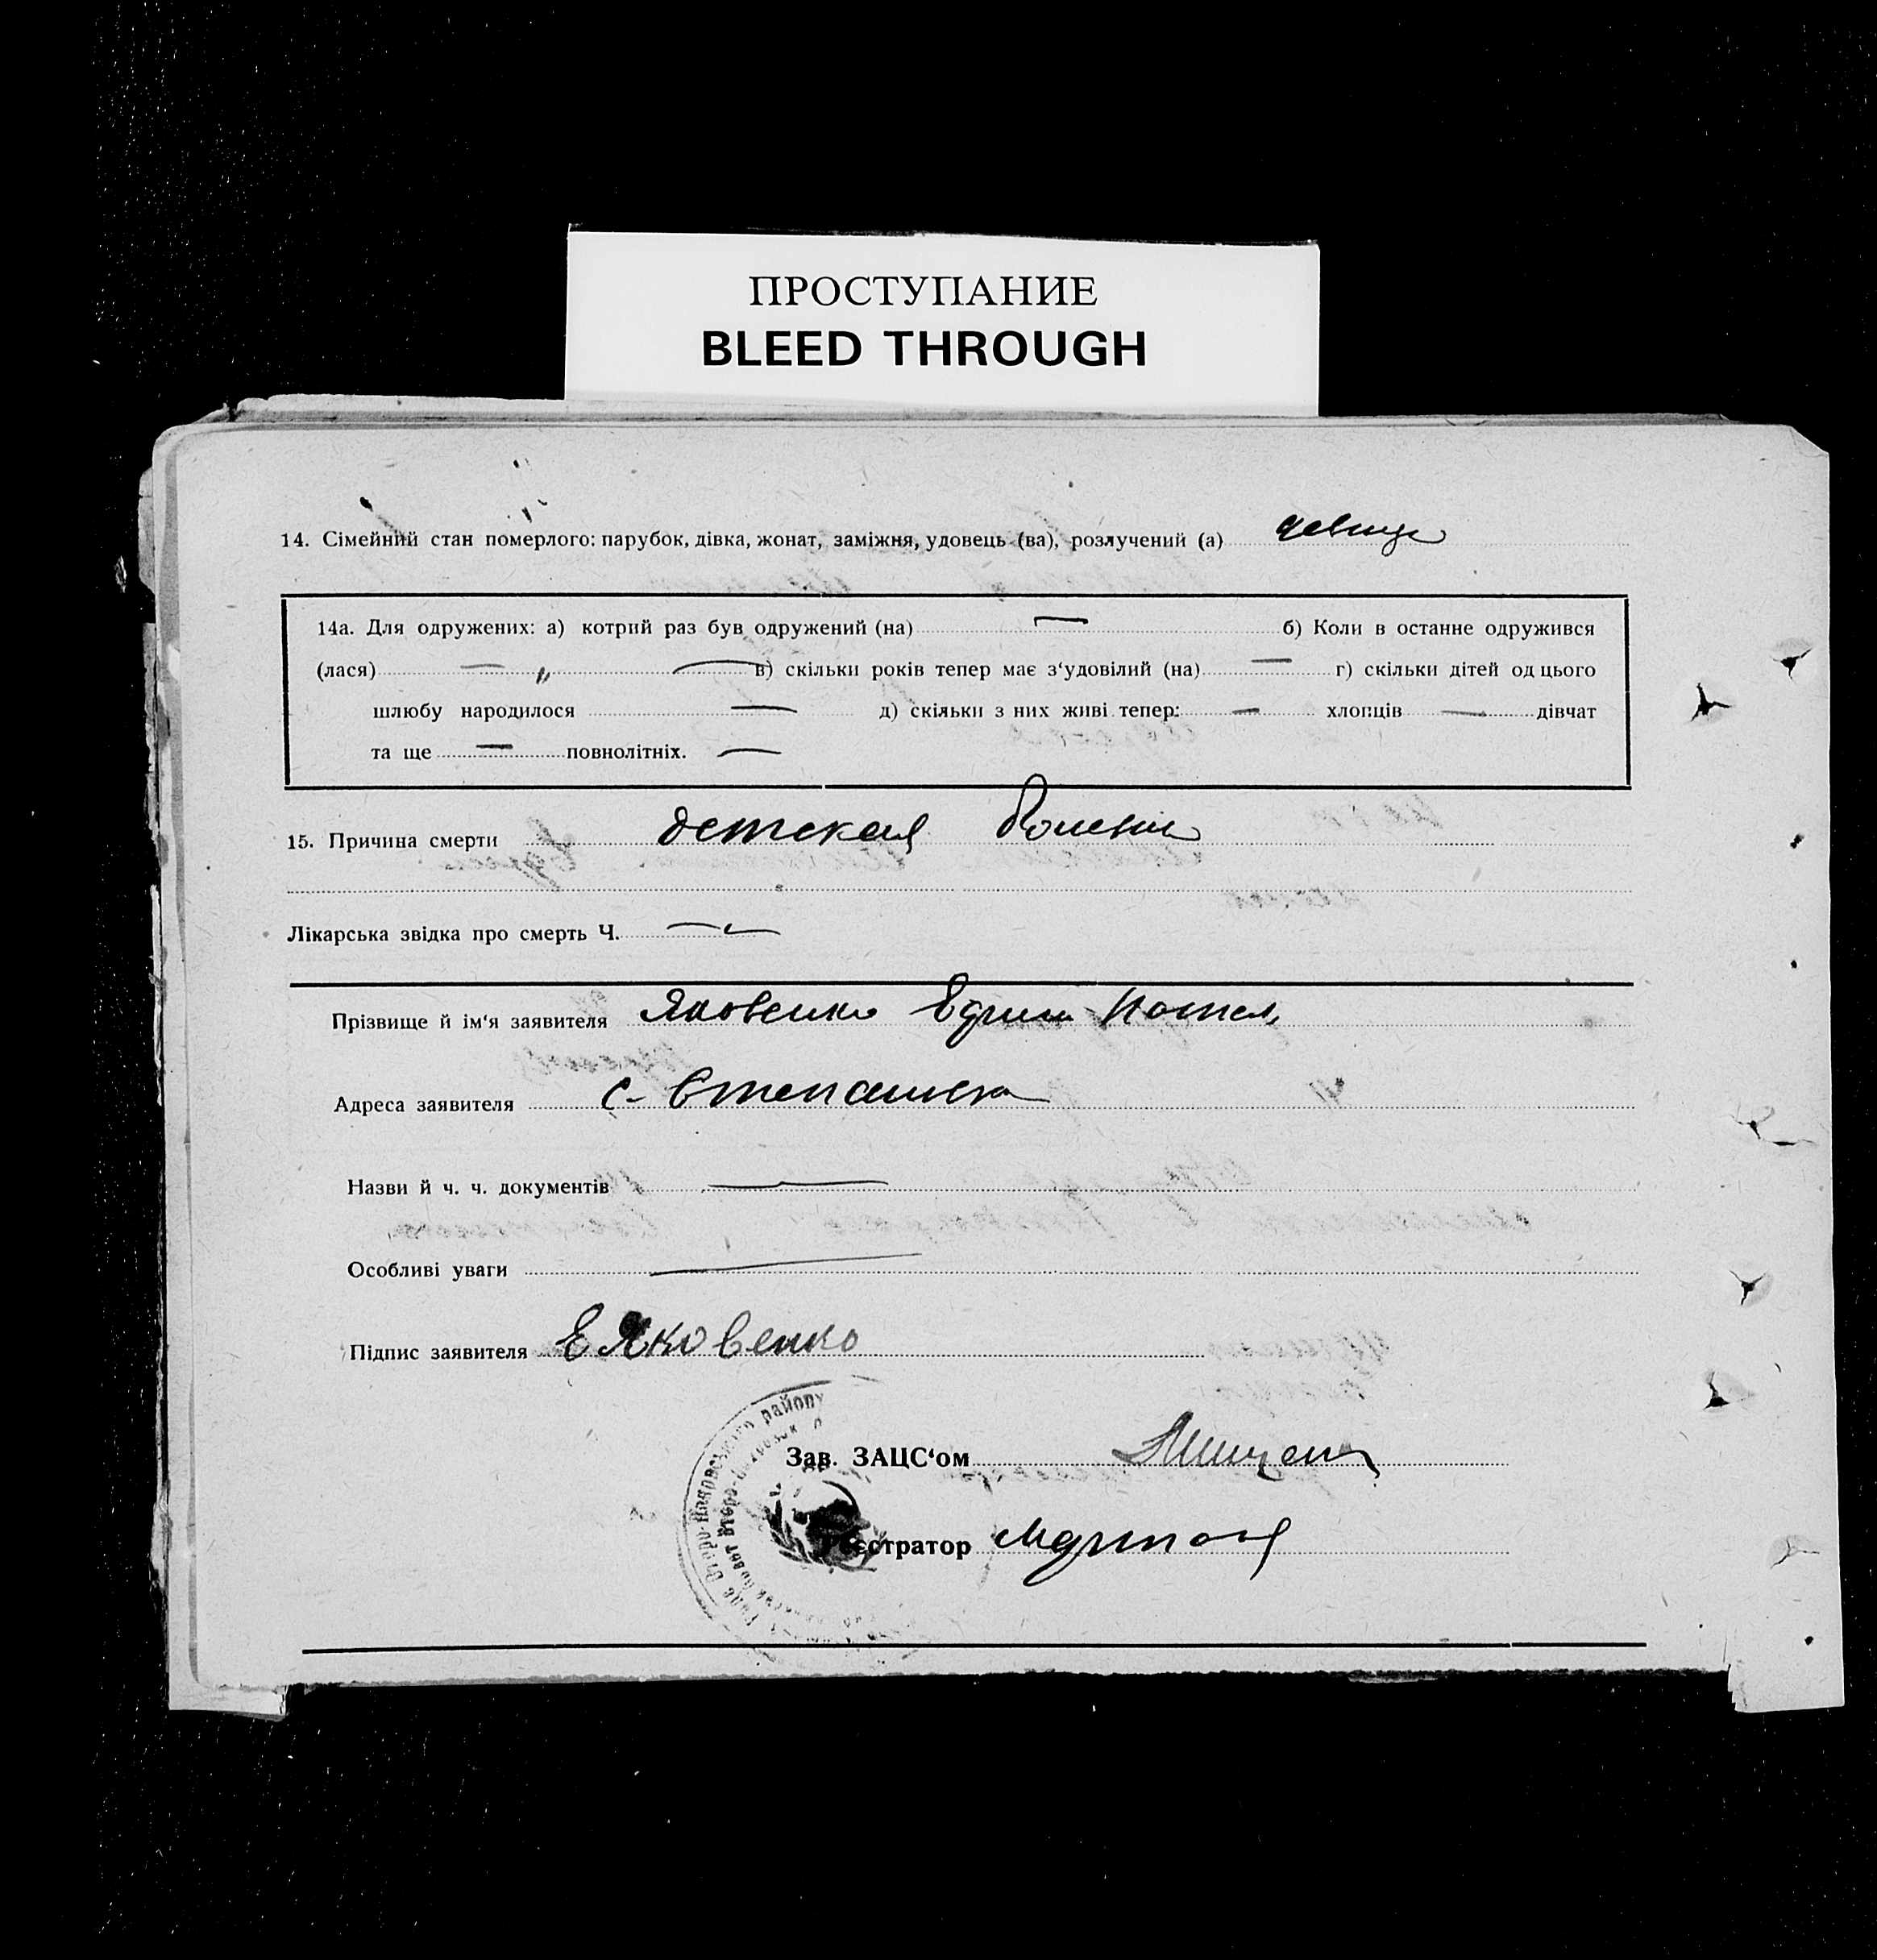 ПРОСТУПАНИЕ
BLEED THROUGH
14. Сімейний стан померлого: парубок, дівка, жонат, заміжня, удовець (ва), розлучений (а) девица
14а. Для одружених: а) котрий раз був одружений (на) — б) Коли в останнє одружився
(лася) — „ — в) скільки років тепер має з‘удовілий (на) — г) скільки дітей од цього
шлюбу народилося — д) скільки з них живі тепер: — хлопців — дівчат
та ще — повнолітніх. —
15. Причина смерти детская
Лікарська звідка про смерть Ч. —
Прізвище й ім‘я заявителя Яковенко
Адреса заявителя с- Степановка
Назви й ч. ч. документів —
Особливі уваги —
Підпис заявителя Е Яковенко
району
Зав. ЗАЦС‘ом
Реєстратор